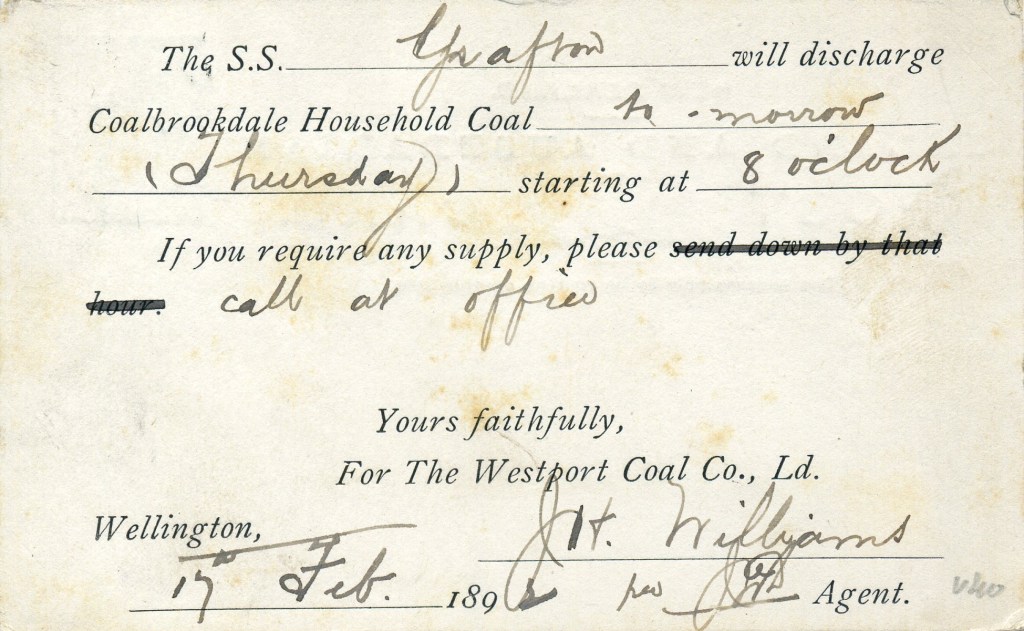 The S.S. Grafton will discharge
Coalbrookdale Household Coal to-morrow
(Thursday) starting at 8 o'clock
If you require any supply, please send down by that
hour. call at office
Yours faithfully,
For The Westport Coal Co., Ld.
Wellington,
J H. Williams
17th Feb. 1892 per Agent.